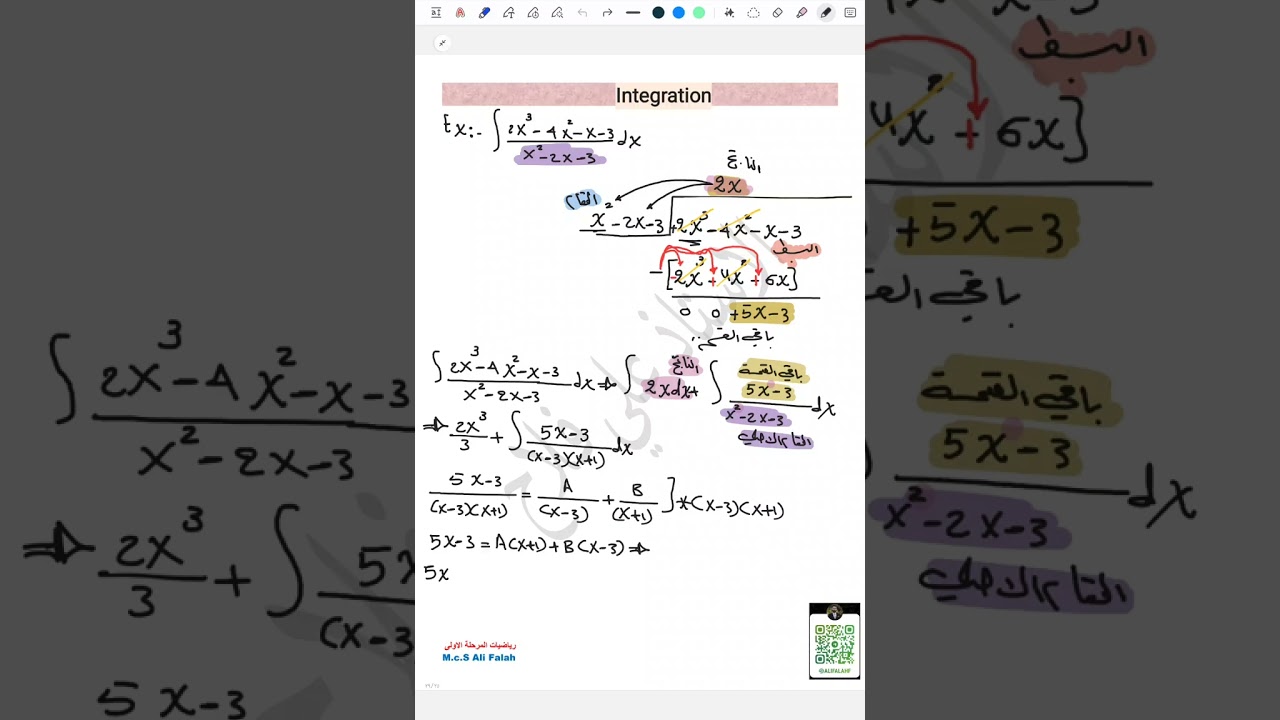 Integration
Ex:- ∫ (2x³-4x²-x-3)/(x²-2x-3) dx
الناتج
2x
المقام
x²-2x-3 +2x³-4x²-x-3
البسط
-[-2x³+4x²+6x]
0 0 +5x-3
باقي القسمة
∫ (2x³-4x²-x-3)/(x²-2x-3) dx ⇒ ∫ 2xdx+ ∫ (5x-3)/(x²-2x-3) dx
الناتج
باقي القسمة
المقام الاصلي
⇒ 2x³/3 + ∫ (5x-3)/((x-3)(x+1)) dx
(5x-3)/((x-3)(x+1)) = A/(x-3) + B/(x+1) ] *(x-3)(x+1)
5x-3 = A(x+1)+B(x-3) ⇒
5x
رياضيات المرحلة الاولى
M.c.S Ali Falah
@ALIFALAHF